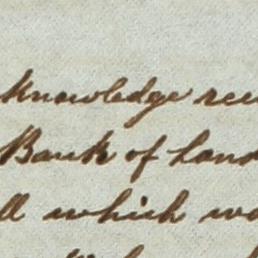 knowledge rece
Bank of Lond
ll which wa